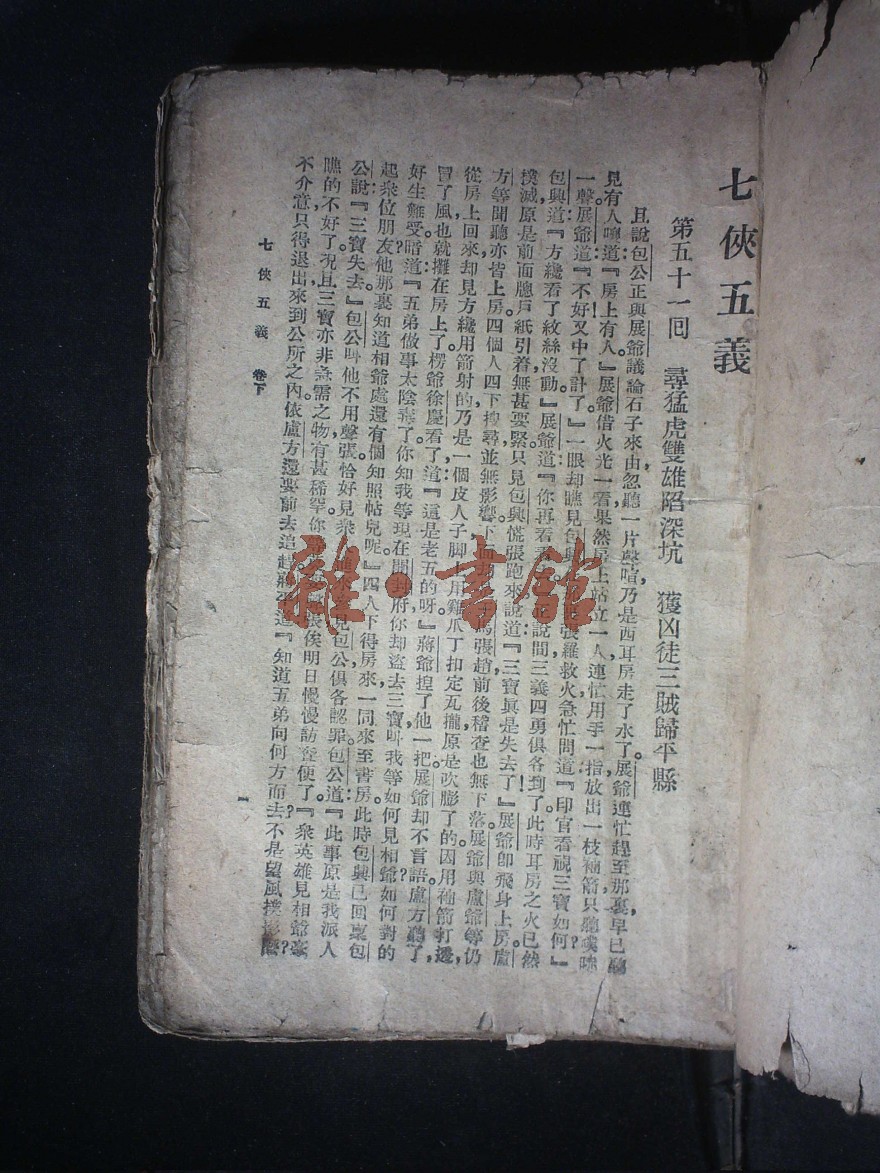 七俠五義
第五十一回　尋猛虎雙雄陷深坑　獲凶徒三賊歸平縣
且說包公正與展爺議論石子來由，忽聽一片聲喧，乃是西耳房走了水了。展爺連忙趕至那裏，早已聽
見有人嚷道：『房上有人。』展爺借火光一看，果然房上站立一人，連忙用手一指，放出一枝袖箭，只聽噗哧
一聲。展爺道：『不好！又中了計了。』一眼却瞧見包興張羅救火，急忙問道：『印官看視三寶如何？』
包興道：『方纔看了，紋絲沒動。』展爺道：『你再看看』說間三義四勇俱各到了。此時耳房之火已然
撲滅，原是前面牕戶紙引着，無甚要緊。只見包興慌張跑來說道：『三寶眞是失去了！』展爺卽飛身上房。盧
方等聞聽，亦皆上房。四個人四下搜尋，並無影響。下面馬張趙前後稽查，也無下落。展爺與盧爺等仍
從房上回來，却見方纔用箭射的，乃是一個皮人子，脚上用鷄爪丁扣定瓦攏，原是吹膨了的，因用袖箭打透，
冒了風，也就攤在房上了。愣爺徐慶看了道：『這是老五的呀。』蔣爺揑了他一把。展爺却不言語。盧方聽了，
好生難受，暗道：『五弟做事太陰毒了。你知我等現在開封府，你却盜去三寶，叫我等如何見相爺？如何對的
起衆位朋友？』他那裏知道相爺處還有個知照帖兒呢。四人下得房來，一同來至書房。此時包興已回稟包
公，說：『三寶失去。』包公叫他不用聲張，恰好見衆進來見包公，俱各認罪。包公道：『此事原是我派人
瞧的不好了。况且三寶亦非急需之物，有甚稀罕。你張，俟明日慢慢訪查便了。』衆英雄見相爺毫
不介意，只得退出來，到公所之內，依盧方還要前去追趕。蔣爺道：『知道五弟向何方而去？不是望風撲影麼？
七俠五義　卷下
一
雜·書館